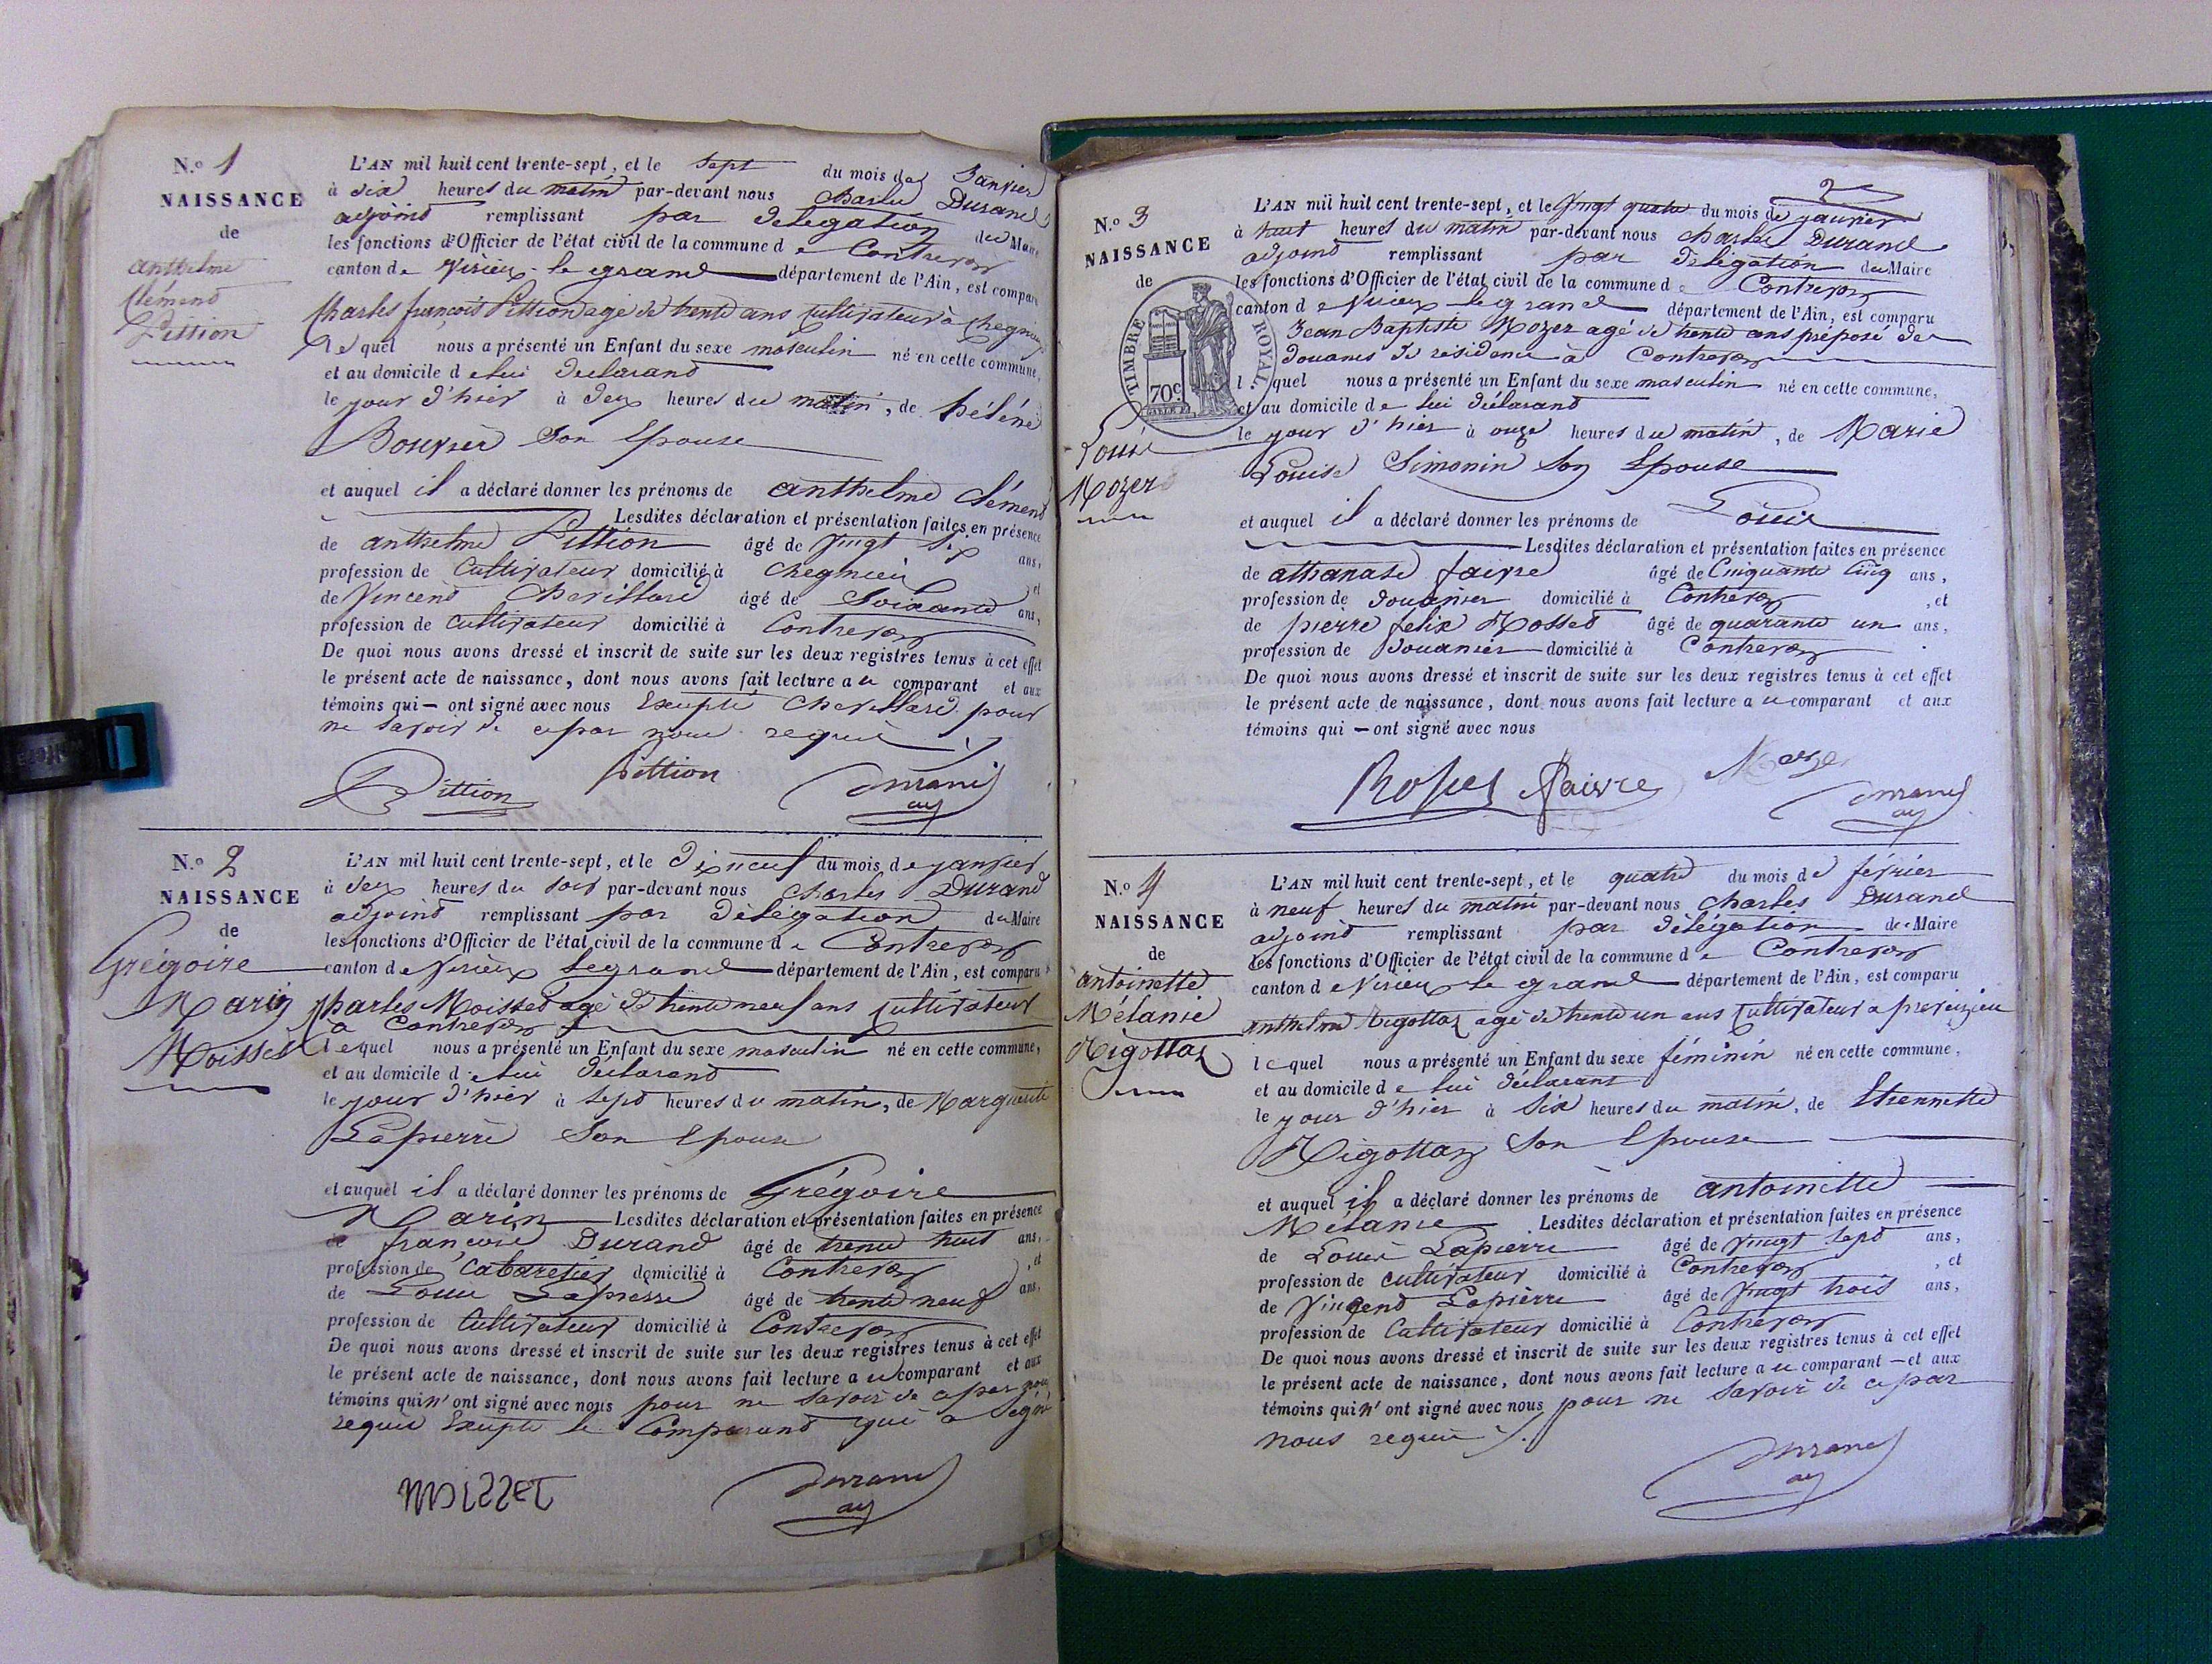 N.º 1
NAISSANCE
de
anthelme
Clémend
Pittion
L'AN mil huit cent trente-sept, et le sept du mois de Janvier
à dix heures du matin par-devant nous Charles Durand
adjoind remplissant par délégation du Maire
les fonctions d'Officier de l'état civil de la commune de Contrevoz
canton de Virieux-le grand département de l'Ain, est comparu
Charles françois Pittion agé de trente ans cultivateur à Chegnieu
lequel nous a présenté un Enfant du sexe masculin né en cette commune,
et au domicile de lui déclarand
le jour d'hier à deux heures du matin, de hélène
Bouvier son Epouse
et auquel il a déclaré donner les prénoms de anthelme Clémend
Lesdites déclaration et présentation faites en présence
de anthelme Pittion âgé de vingt six ans,
profession de Cultivateur domicilié à Chegnieu et
de Vincend Chevillard âgé de Soixante ans,
profession de Cultivateur domicilié à Contrevoz
De quoi nous avons dressé et inscrit de suite sur les deux registres tenus à cet effet
le présent acte de naissance, dont nous avons fait lecture au comparant et aux
témoins qui ont signé avec nous Excepté Chevillard pour
ne savoir de ce par nous requis
Pittion Pittion Durand
adj
N.º 2
NAISSANCE
de
Grégoire
Marin
Moisset
L'AN mil huit cent trente-sept, et le Dixneuf du mois de janvier
à deux heures du soir par-devant nous Charles Durand
adjoind remplissant par délégation du Maire
les fonctions d'Officier de l'état civil de la commune de Contrevoz
canton de Virieux Legrand département de l'Ain, est comparu
Charles Moisset agé de trente neuf ans Cultivateur
à Contrevoz
lequel nous a présenté un Enfant du sexe masculin né en cette commune,
et au domicile de lui déclarand
le jour d'hier à sept heures du matin, de Marguerite
Lapierre Son Epouse
et auquel il a déclaré donner les prénoms de Grégoire
Marin Lesdites déclaration et présentation faites en présence
de françois Durand âgé de trente huit ans,
profession de Cabaretier domicilié à Contrevoz, et
de Louis Lapierre âgé de trente neuf ans,
profession de Cultivateur domicilié à Contrevoz
De quoi nous avons dressé et inscrit de suite sur les deux registres tenus à cet effet
le présent acte de naissance, dont nous avons fait lecture au comparant et aux
témoins qui n'ont signé avec nous pour ne savoir de ce par nous
requis Excepté le Comparand qui a Signé
MOISSET Durand
adj
2
N.º 3
NAISSANCE
de
TIMBRE ROYAL
70c.
Louis
Mozer
L'AN mil huit cent trente-sept, et le vingt quatre du mois de janvier
à huit heures du matin par-devant nous Charles Durand
adjoind remplissant par délégation du Maire
les fonctions d'Officier de l'état civil de la commune de Contrevoz
canton de Virieux le grand département de l'Ain, est comparu
Jean Baptiste Mozer agé de trente ans préposé des
douanes de résidence à Contrevoz
lequel nous a présenté un Enfant du sexe masculin né en cette commune,
et au domicile de lui déclarand
le jour d'hier à onze heures du matin, de Marie
Louise Simonin Son Epouse
et auquel il a déclaré donner les prénoms de Louis
Lesdites déclaration et présentation faites en présence
de athanase faivre âgé de Cinquante Cinq ans,
profession de Douanier domicilié à Contrevoz, et
de pierre felix Rosset âgé de quarante un ans,
profession de Douanier domicilié à Contrevoz
De quoi nous avons dressé et inscrit de suite sur les deux registres tenus à cet effet
le présent acte de naissance, dont nous avons fait lecture au comparant et aux
témoins qui ont signé avec nous
Rosset faivre Mozer
Durand
adj
N.º 4
NAISSANCE
de
antoinette
Mélanie
Rigottaz
L'AN mil huit cent trente-sept, et le quatre du mois de février
à neuf heures du matin par-devant nous Charles Durand
adjoind remplissant par délégation du Maire
les fonctions d'Officier de l'état civil de la commune de Contrevoz
canton de Virieux le grand département de l'Ain, est comparu
anthelme Rigottaz agé de trente un ans Cultivateur a preveizieu
lequel nous a présenté un Enfant du sexe féminin né en cette commune,
et au domicile de lui déclarant
le jour d'hier à Six heures du matin, de Etiennette
Rigottaz Son Epouse
et auquel il a déclaré donner les prénoms de antoinette
Mélanie Lesdites déclaration et présentation faites en présence
de Louis Lapierre âgé de vingt sept ans,
profession de Cultivateur domicilié à Contrevoz, et
de Vincend Lapierre âgé de vingt trois ans,
profession de Cultivateur domicilié à Contrevoz
De quoi nous avons dressé et inscrit de suite sur les deux registres tenus à cet effet
le présent acte de naissance, dont nous avons fait lecture au comparant et aux
témoins qui n'ont signé avec nous pour ne savoir de ce par
nous requis
Durand
adj